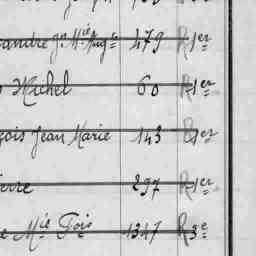 andre Jn Mie Aug te 479 R 1er
Michel 60 R 1er
çois Jean Marie 143 R 1er
erre 297 R 1er
e Mie Fois 1347 R 3e